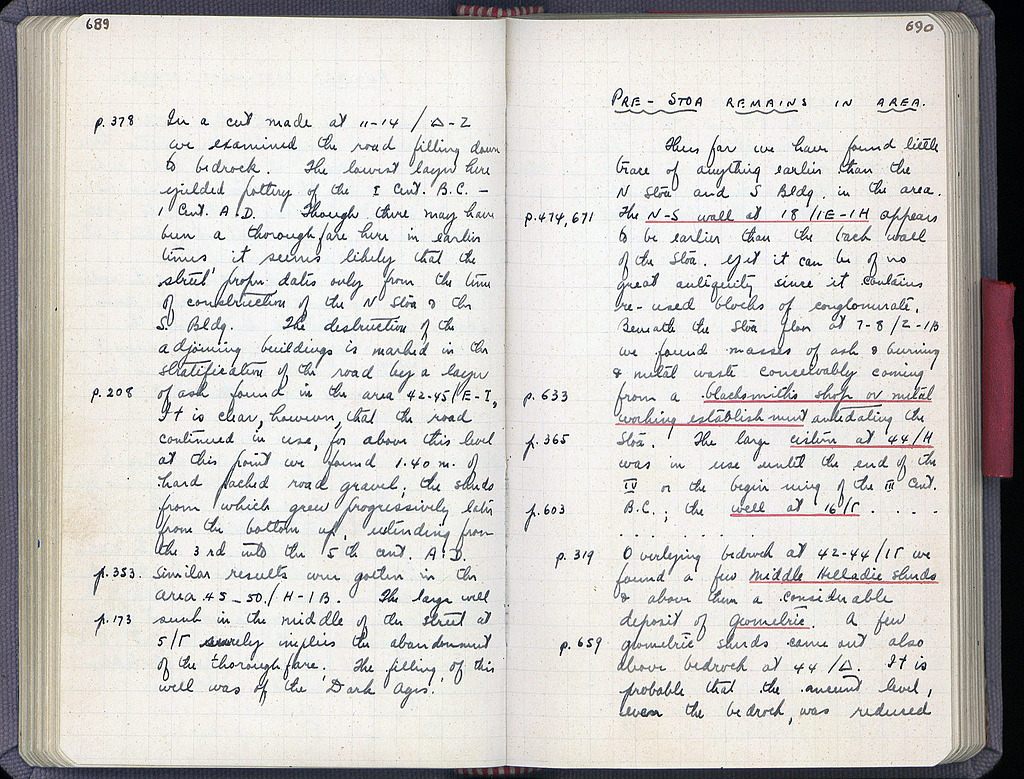 689
p.378 In a cut made at 11-14 / Δ-Z
we examined the road filling down
to bedrock. The lowest layer here
yielded pottery of the I Cent. B.C. –
1 Cent. A.D. Though there may have
been a thoroughfare here in earlier
times it seems likely that the
street proper dates only from the time
of construction of the N Stoa & the
S. Bldg. The destruction of the
adjoining buildings is marked in the
stratification of the road by a layer
p.208 of ash found in the area 42-45/E-I,
It is clear, however, that the road
continued in use, for above this level
at this point we found 1.40 m. of
hard packed road gravel, the sherds
from which grew progressively later
from the bottom up, extending from
the 3rd into the 5th cent. A.D.
p.353. Similar results were gotten in the
area 45-50/H-IB. The large well
p.173 sunk in the middle of the street at
5/Γ surely implies the abandonment
of the thoroughfare. The filling of this
well was of the Dark Ages.
690
PRE-STOA REMAINS IN AREA.
Thus far we have found little
trace of anything earlier than the
N Stoa and S Bldg. in the area.
p.474,671 The N-S wall at 18/IE-IH appears
to be earlier than the back wall
of the Stoa. yet it can be of no
great antiquity since it contains
re-used blocks of conglomerate.
Beneath the Stoa floor at 7-8/Z-IB
we found masses of ash & burning
& metal waste conceivably coming
p.633 from a blacksmith's shop or metal
working establishment antedating the
p.365 Stoa. The large cistern at 44/H
was in use until the end of the
IV or the beginning of the III Cent.
p.603 B.C.; the well at 16/Γ . . . . .
. . . . . . . . . . . .
p.319 Overlying bedrock at 42-44/IΓ we
found a few Middle Helladic sherds
& above them a considerable
deposit of Geometric. A few
p.659 geometric sherds came out also
above bedrock at 44/Δ. It is
probable that the ancient level,
even the bedrock, was reduced